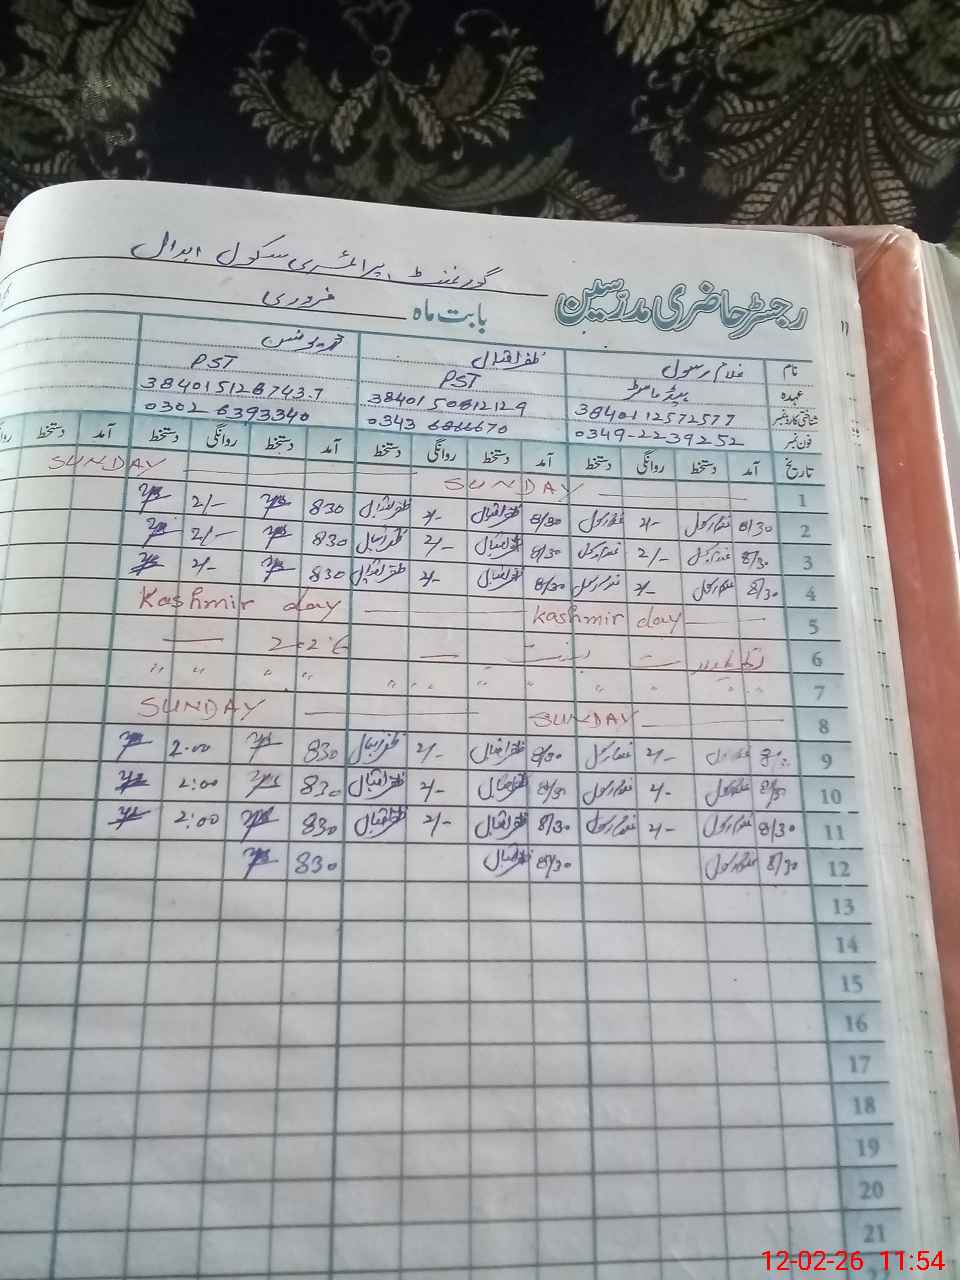 گورنمنٹ پرائمری سکول ابدال
رجسٹر حاضری مدرسین بابت ماہ فروری
نام غلام رسول ظفر اقبال
عہدہ ہیڈ ماسٹر PST PST
شناختی کارڈ نمبر 3840112572577 3840150812129
فون نمبر 0349-2239252 0302 6393340
تاریخ آمد دستخط روانگی دستخط آمد دستخط روانگی دستخط آمد دستخط روانگی دستخط آمد دستخط
1 SUNDAY SUNDAY
2 8/30 غلام رسول 2/- غلام رسول 8/30 ظفر اقبال 2/- ظفر اقبال 830 2/-
3 8/30 غلام رسول 2/- غلام رسول 8/30 ظفر اقبال 2/- ظفر اقبال 830 2/-
4 8/30 غلام رسول 2/- غلام رسول 8/30 ظفر اقبال 2/- ظفر اقبال 830 2/-
5 Kashmir day Kashmir day
6
7 " " " " " " " " " " "
8 SUNDAY SUNDAY
9 8/30 غلام رسول 2/- غلام رسول 8/30 ظفر اقبال 2/- ظفر اقبال 830 2:00
10 8/30 غلام رسول 2/- غلام رسول 8/30 ظفر اقبال 2/- ظفر اقبال 830 2:00
11 8/30 غلام رسول 2/- غلام رسول 8/30 ظفر اقبال 2/- ظفر اقبال 830 2:00
12 8/30 غلام رسول 8/30 ظفر اقبال 830
13
14
15
16
17
18
19
20
21
12-02-26 11:54